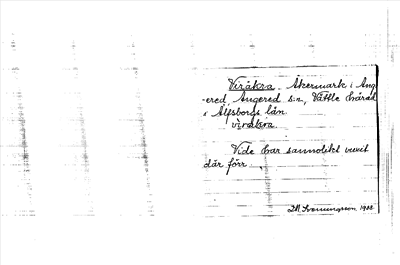 Viråkra. Åkermark i Ang-
ered, Angered s:n, Vättle härad
i Älfsborgs län.
viråkra
Vide har sannolikt vuxit
där förr.
Svenungsson 1922